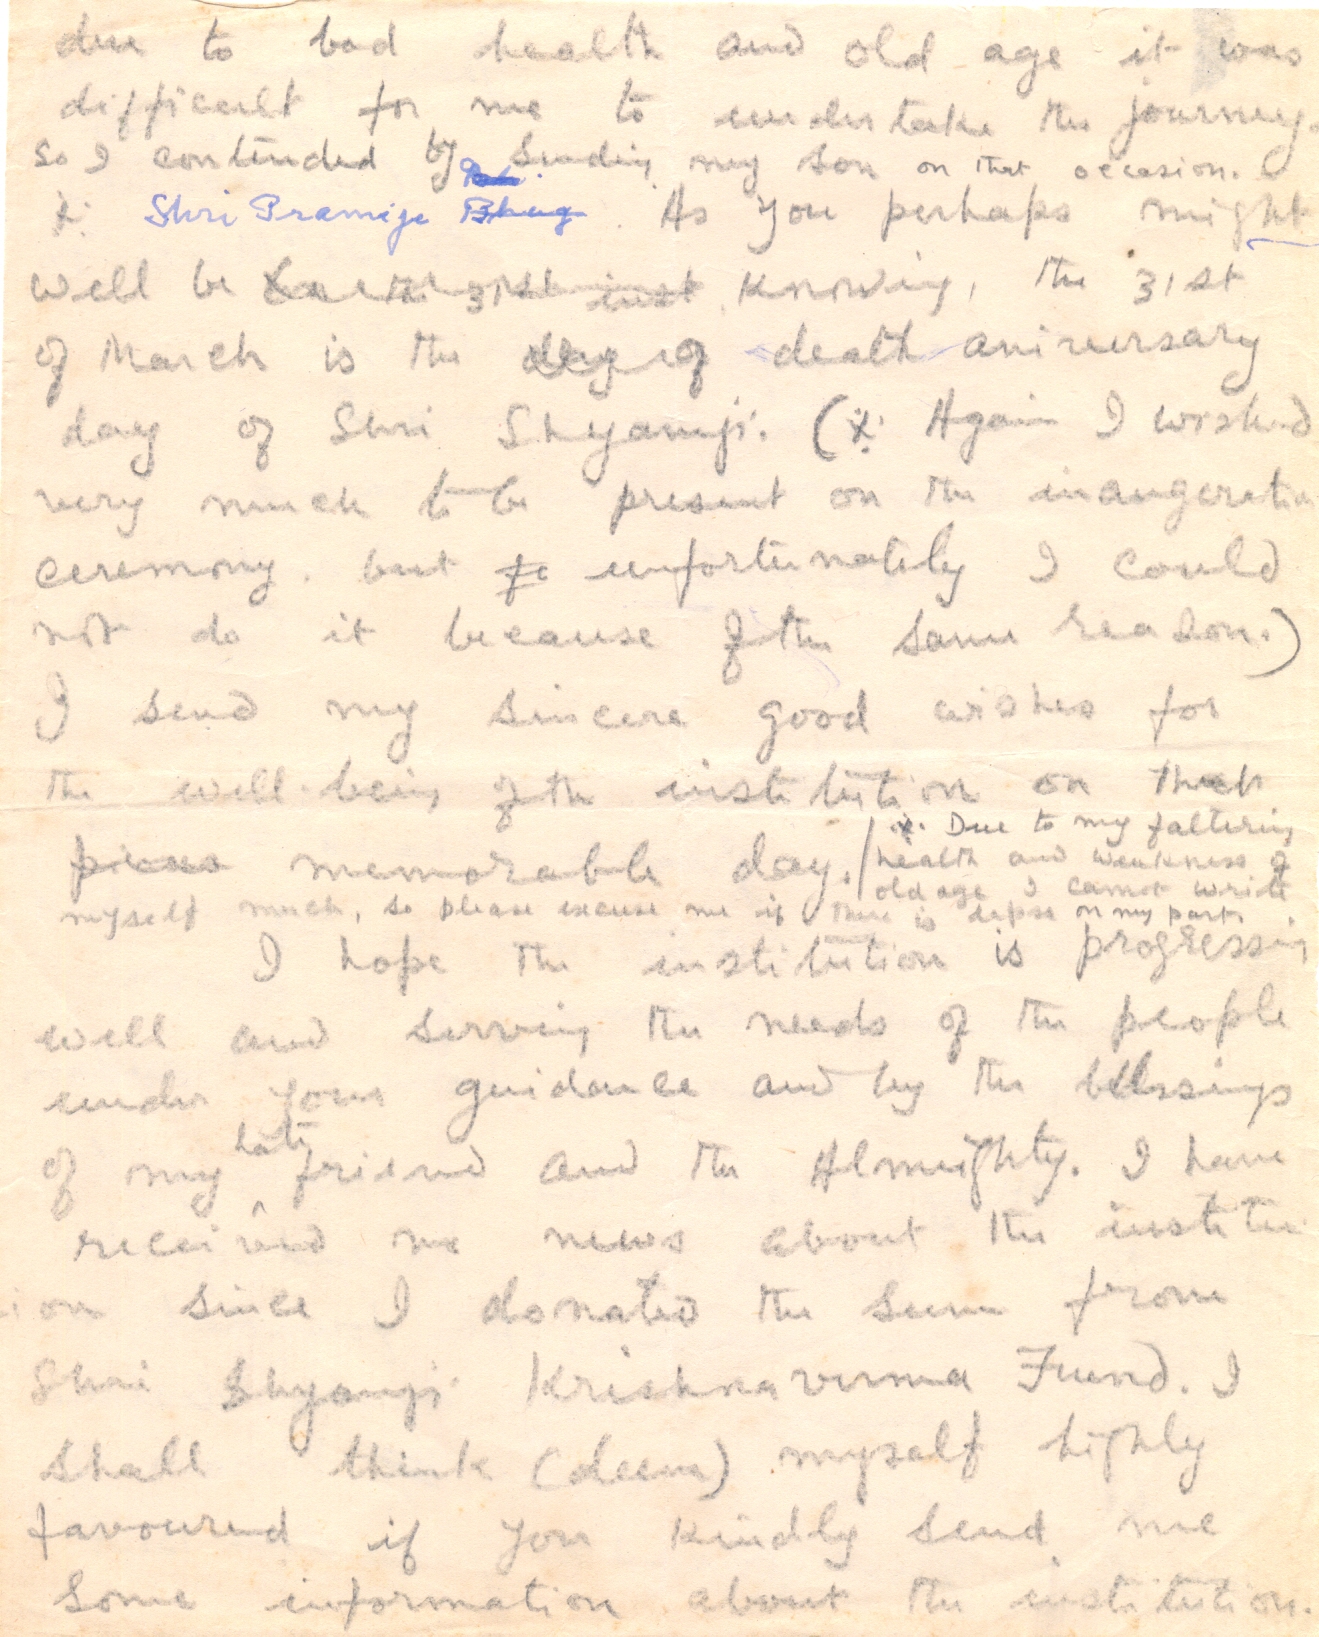 due to bad health and old age it was
difficult for me to undertake the journey.
so I contended by sending my son on that occasion.
x Shri Pramije Bhug. As you perhaps might
well be on the 31st inst knowing, the 31st
of March is the day of death aniversary
day of Shri Shyamji. (x Again I wished
very much to be present on the inaugeration
ceremony. but unfortunately I could
not do it because of the same reason.)
I send my sincere good wishes for
the well-being of the institution on that
pious memorable day. / x. Due to my faltering
health and weakness of
old age I cannot write
myself much, so please excuse me if there is lapse on my part.
I hope the institution is progressing
well and serving the needs of the people
under your guidance and by the blessings
of my late friend and the Almighty. I have
received no news about the institu
ion since I donated the sum from
Shri Shyamji Krishnavurma Fund. I
shall think (deem) myself highly
favoured if you kindly send me
some information about the institution.